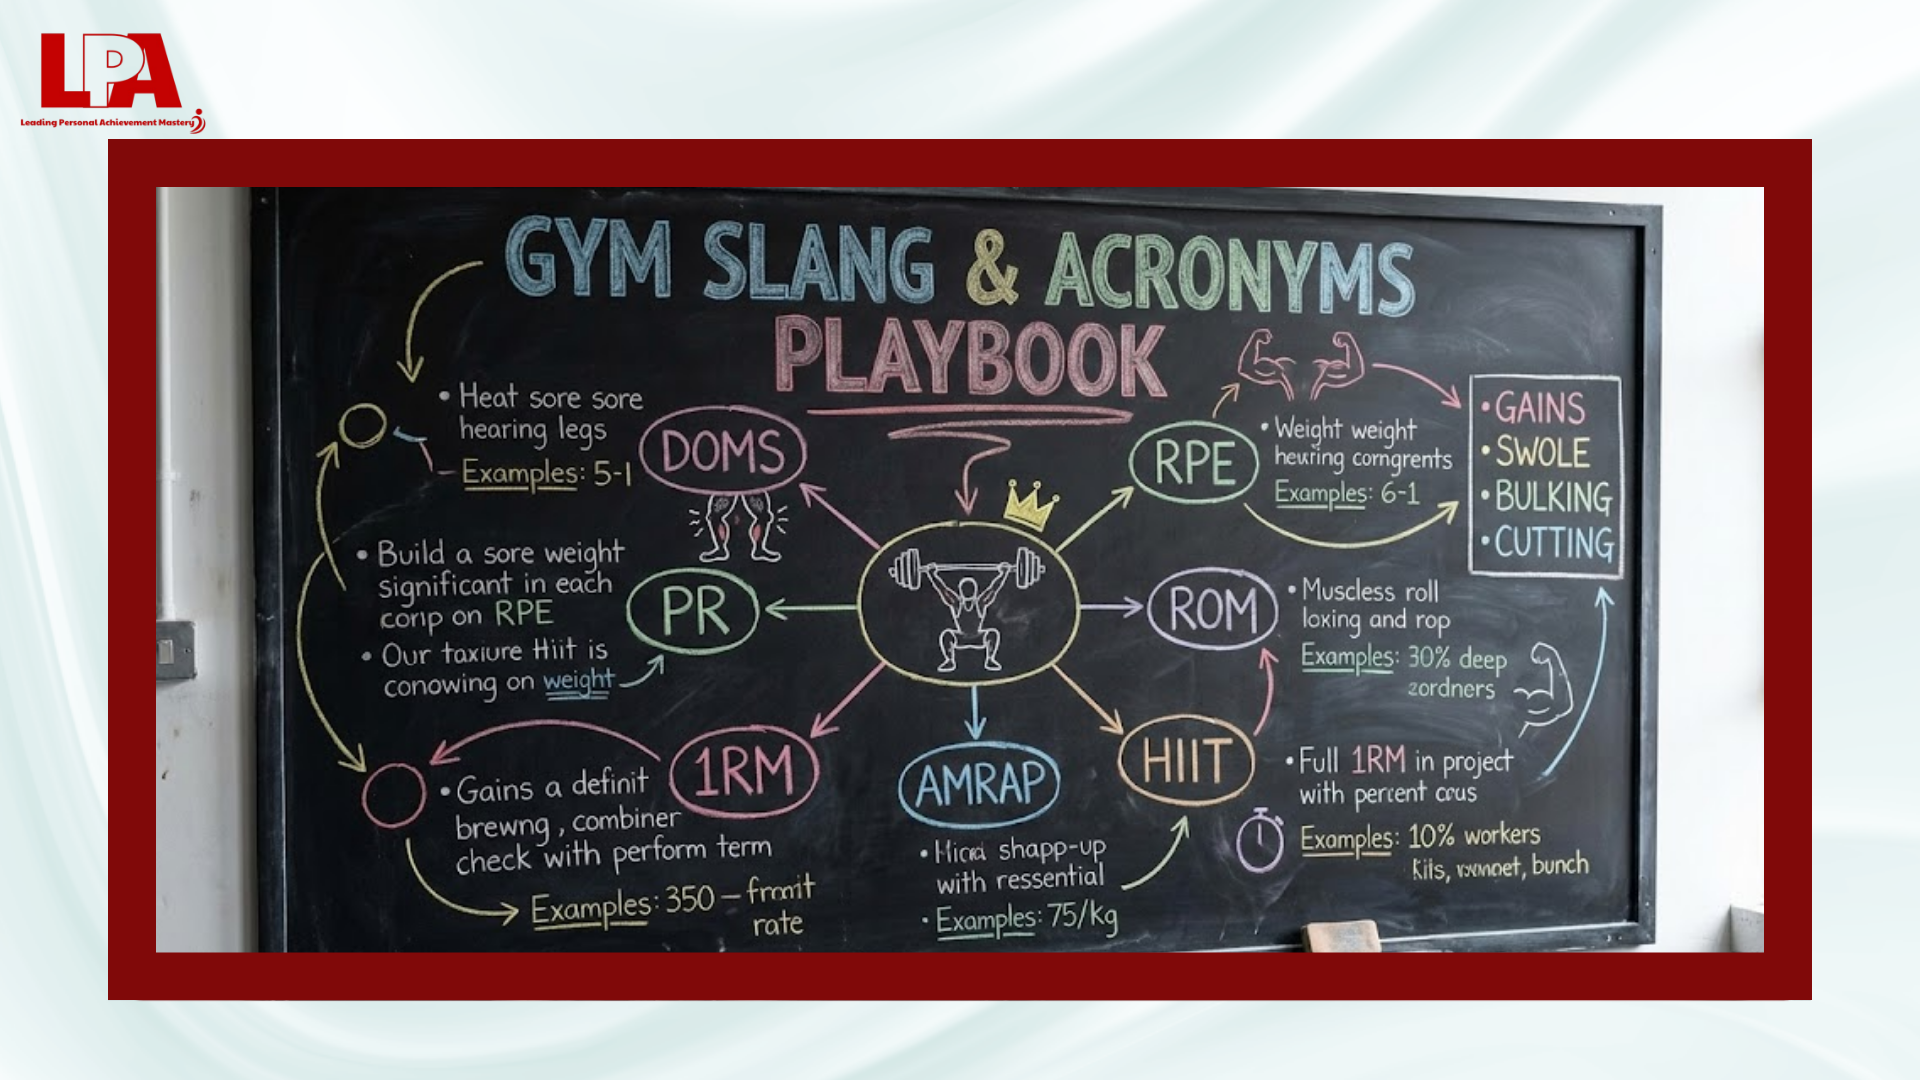 LPA
Leading Personal Achievement Mastery
GYM SLANG & ACRONYMS
PLAYBOOK
• Heat sore sore
hearing legs
– Examples: 5-1
DOMS
RPE
• Weight weight
heuring comgrents
Examples: 6-1
• GAINS
• SWOLE
• BULKING
• CUTTING
• Build a sore weight
significant in each
corip on RPE
• Our taxiure Hiit is
conowing on weight
PR
ROM
• Muscless roll
loxing and rop
Examples: 30% deep
zordners
1RM
• Gains a definit
brewng, combiner
check with perform term
Examples: 350 – frmit
rate
AMRAP
• shapp-up
with ressential
• Examples: 75/kg
HIIT
• Full 1RM in project
with percent cous
Examples: 10% workers
kils, bunch